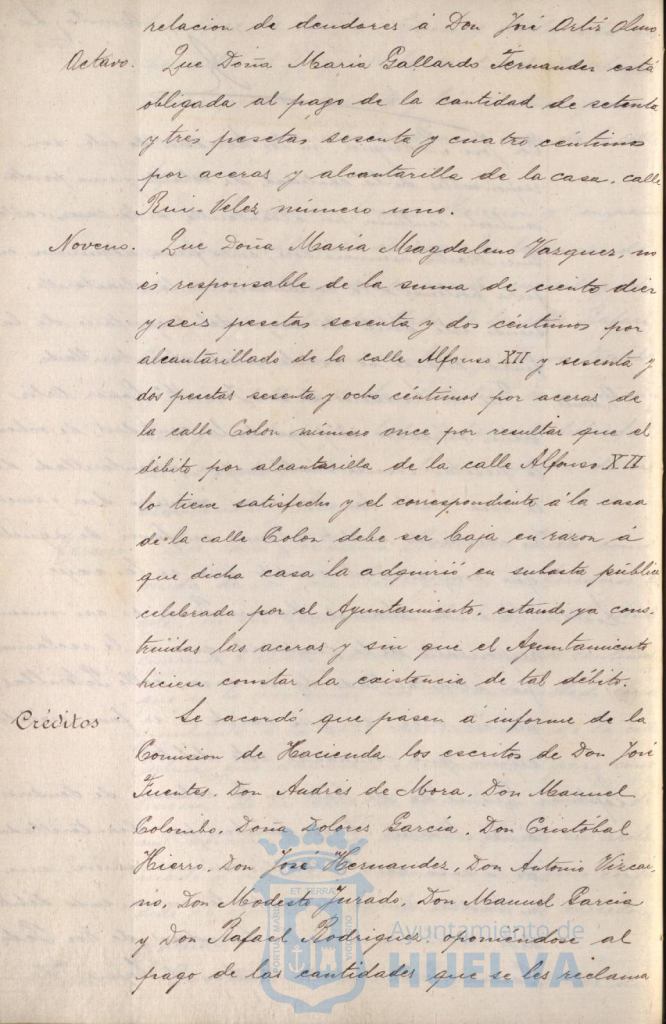 relacion de deudores á Don José Ortiz Olmo.
Octavo. Que Doña Maria Gallardo Fernandez está
obligada al pago de la cantidad de setenta
y tres pesetas sesenta y cuatro céntimos
por aceras y alcantarilla de la casa, calle
Rui-Velez número uno.
Noveno. Que Doña Maria Magdaleno Vazquez, no
es responsable de la suma de ciento diez
y seis pesetas sesenta y dos céntimos por
alcantarillado de la calle Alfonso XII y sesenta y
dos pesetas sesenta y ocho céntimos por aceras de
la calle Colon número once por resultar que el
débito por alcantarilla de la calle Alfonso XII
lo tiene satisfecho y el correspondiente á la casa
de la calle Colon debe ser baja en razon á
que dicha casa la adquirió en subasta pública
celebrada por el Ayuntamiento, estando ya cons-
truidas las aceras y sin que el Ayuntamiento
hiciese constar la existencia de tal débito.
Créditos Se acordó que pasen á informe de la
Comision de Hacienda los escritos de Don José
Fuentes, Don Andrés de Mora, Don Manuel
Colombo, Doña Dolores García, Don Cristóbal
Hierro, Don José Hernandez, Don Antonio Vizcai-
no, Don Modesto Jurado, Don Manuel García
y Don Rafael Rodriguez oponiéndose al
pago de las cantidades que se les reclama
Ayuntamiento de
HUELVA